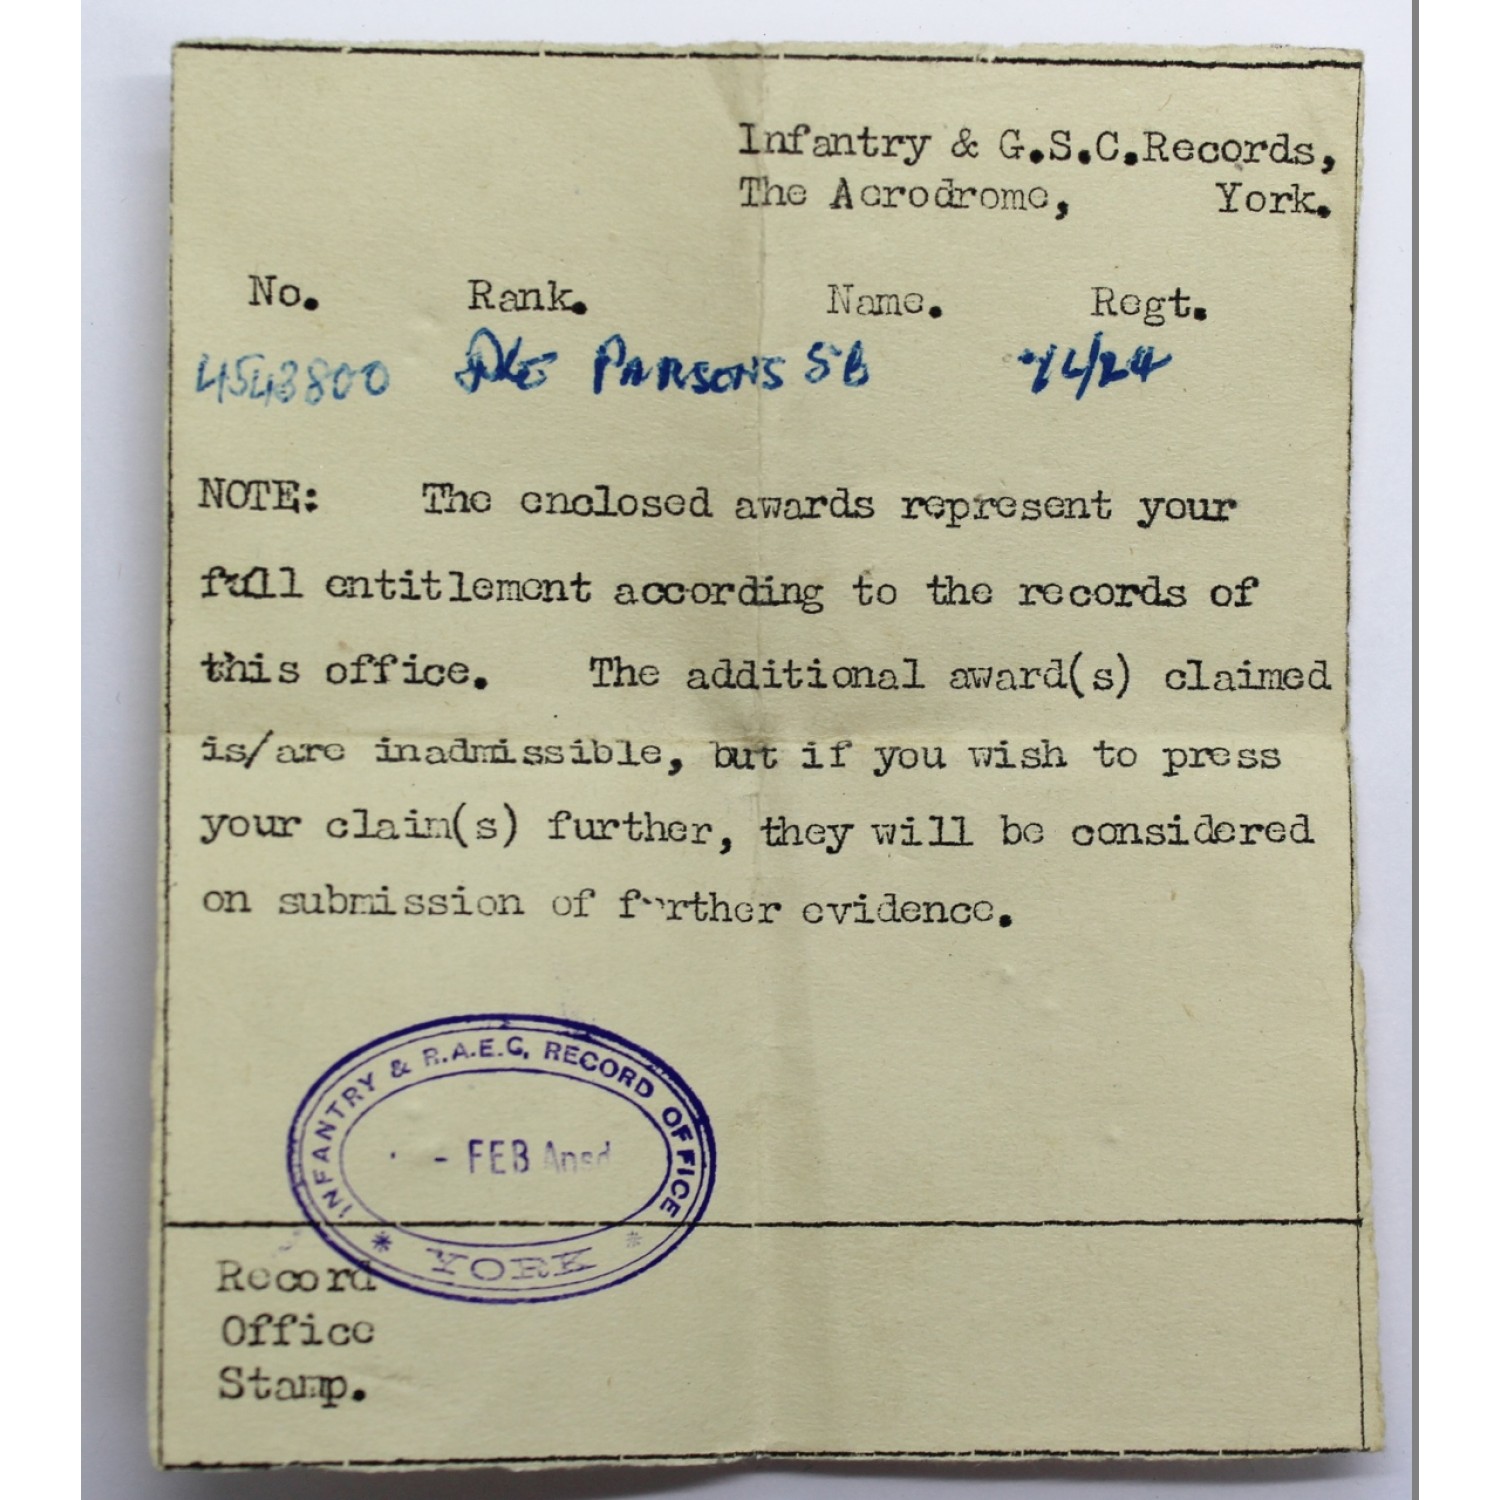 Infantry & G.S.C.Records,
The Aerodrome, York.
No. Rank. Name. Regt.
4543800 PARSONS SB
NOTE: The enclosed awards represent your
full entitlement according to the records of
this office. The additional award(s) claimed
is/are inadmissible, but if you wish to press
your claim(s) further, they will be considered
on submission of further evidence.
INFANTRY & R.A.E.C. RECORD OFFICE
- FEB
* YORK *
Record
Office
Stamp.